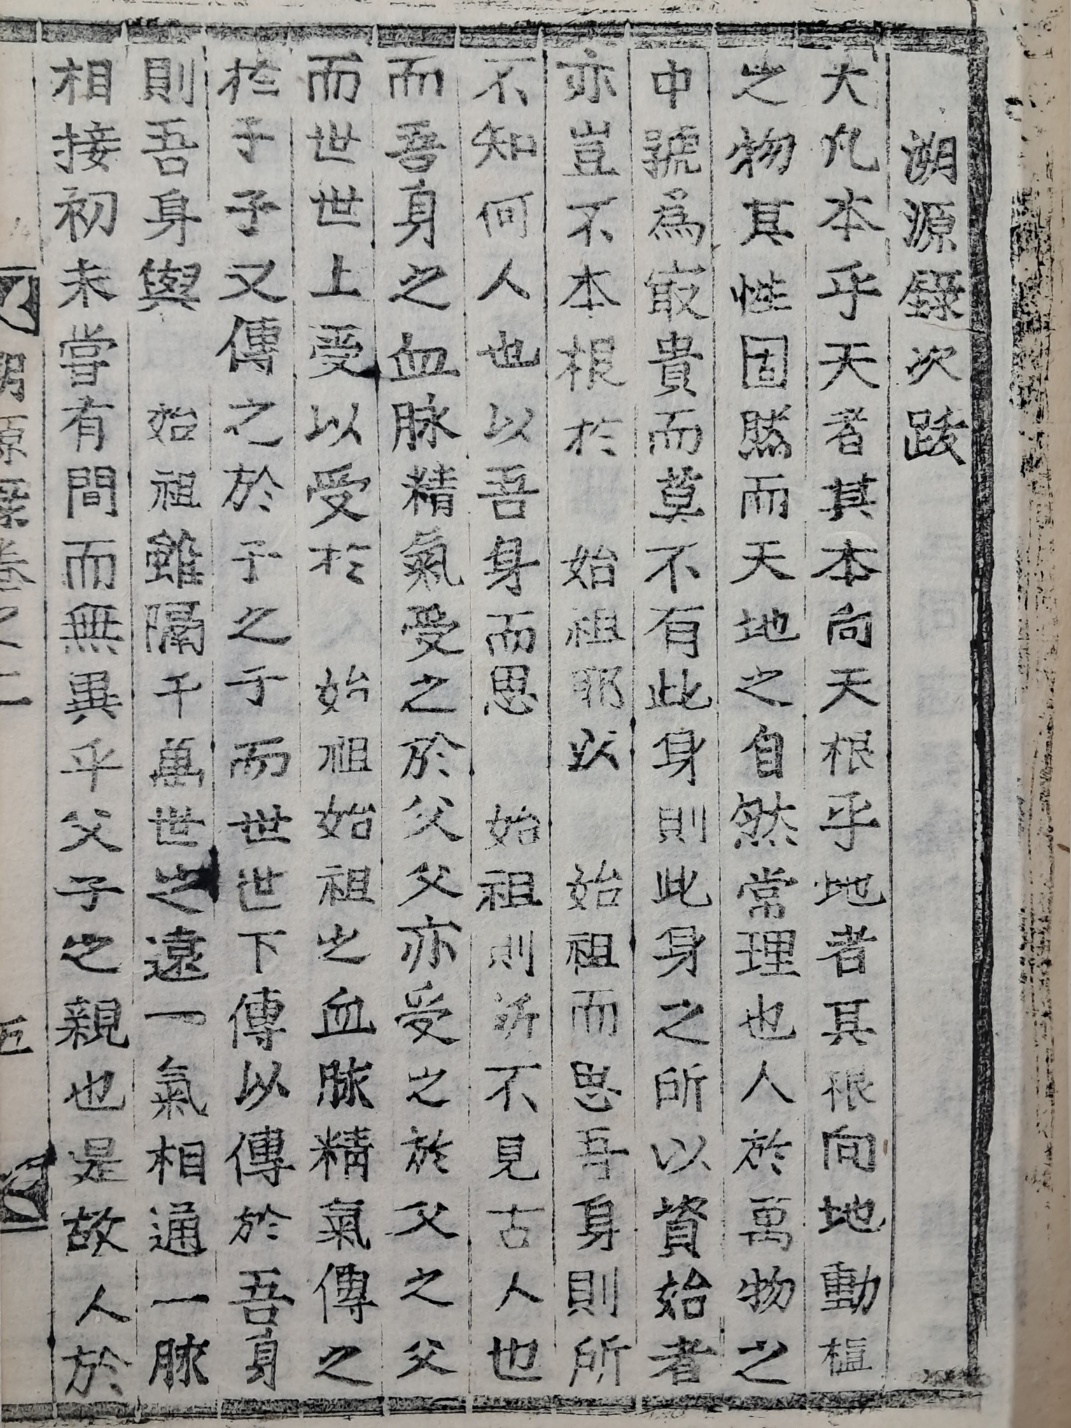 溯源錄次跋
大凡本乎天者其本向天根乎地者其根向地動樞
之物其性固然而天地之自然常理也人於萬物之
中號爲㝡貴而莫不有此身則此身之所以資始者
亦豈不本根於 始祖耶以 始祖而思吾身則所
不知何人也以吾身而思 始祖則所不見古人也
而吾身之血脉精氣受之於父父亦受之於父之父
而世世上受以受於 始祖始祖之血脉精氣傳之
於子子又傳之於子之子而世世下傳以傳於吾身
則吾身與 始祖雖隔千萬世之遠一氣相通一脉
相接初未嘗有間而無異乎父子之親也是故人於
溯源錄卷之二 五